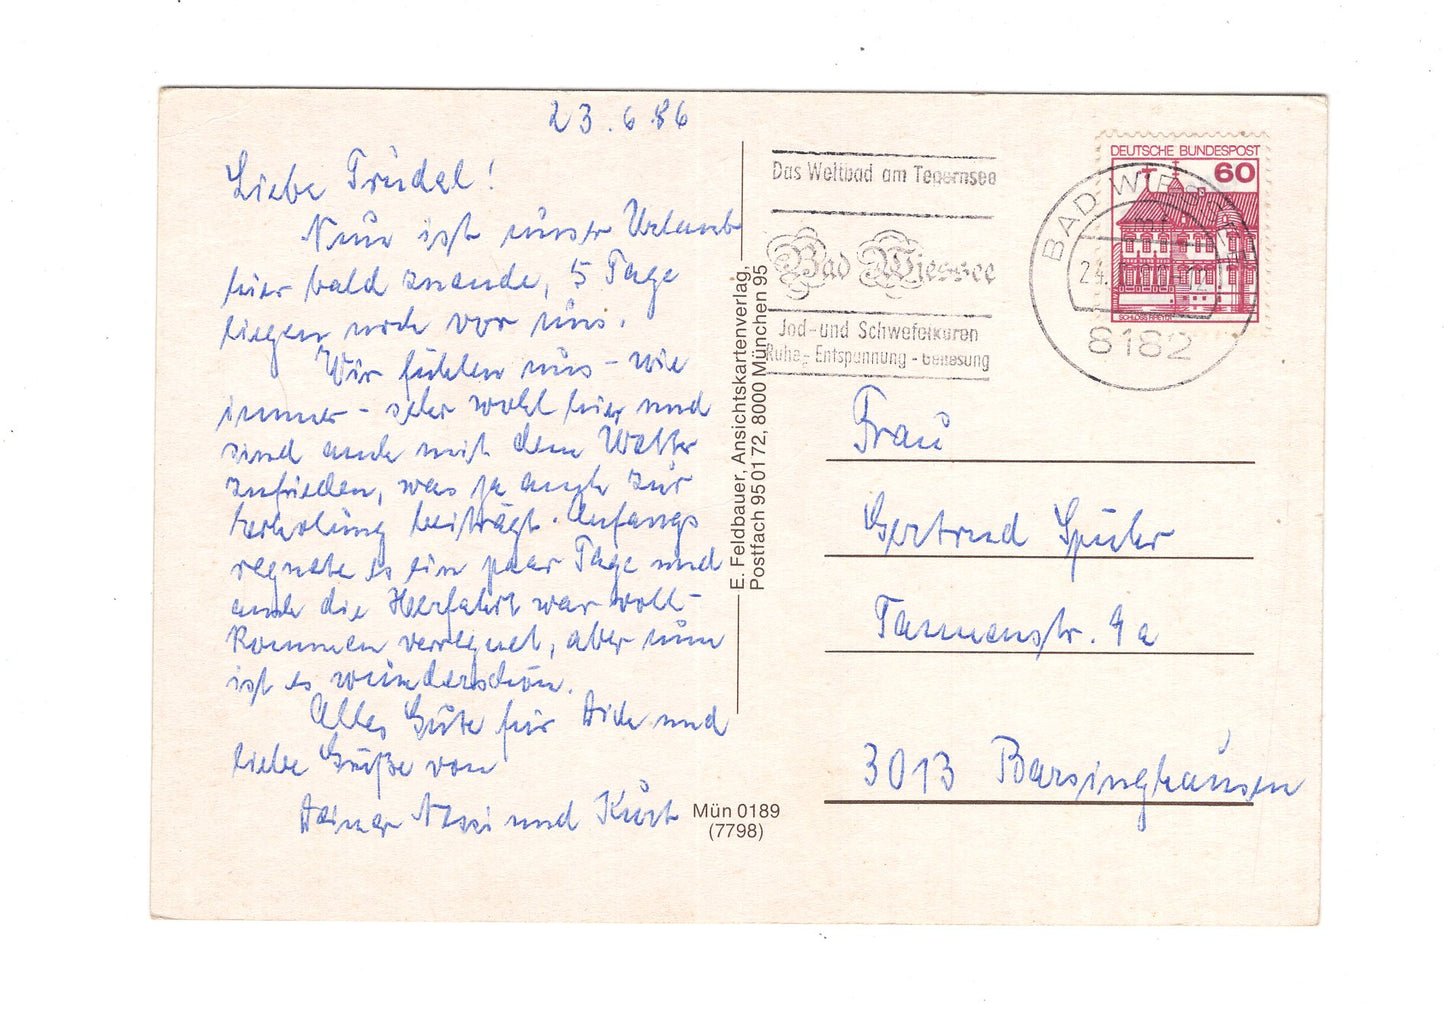 23.6.86
Liebe Trudel!
Nun ist unser Urlaub
hier bald zuende, 5 Tage
liegen noch vor uns.
Wir fühlen uns – wie
immer – sehr wohl hier und
sind auch mit dem Wetter
zufrieden, was ja auch zur
Erholung beiträgt. Anfangs
regnete es ein paar Tage und
auch die Herfahrt war voll-
kommen verregnet, aber nun
ist es wunderschön.
Alles Gute für Dich und
liebe Grüße von
und Kurt
E. Feldbauer, Ansichtskartenverlag,
Postfach 950172, 8000 München 95
Mün 0189
(7798)
Das Weltbad am Tegernsee
Bad Wiessee
Jod- und Schwefelkuren
Ruhe - Entspannung - Genesung
BAD WIESSEE
24.
8182
DEUTSCHE BUNDESPOST
60
SCHLOSS RHEYDT
Frau
Gertrud Spuhr
Tannenstr. 9a
3013 Barsinghausen